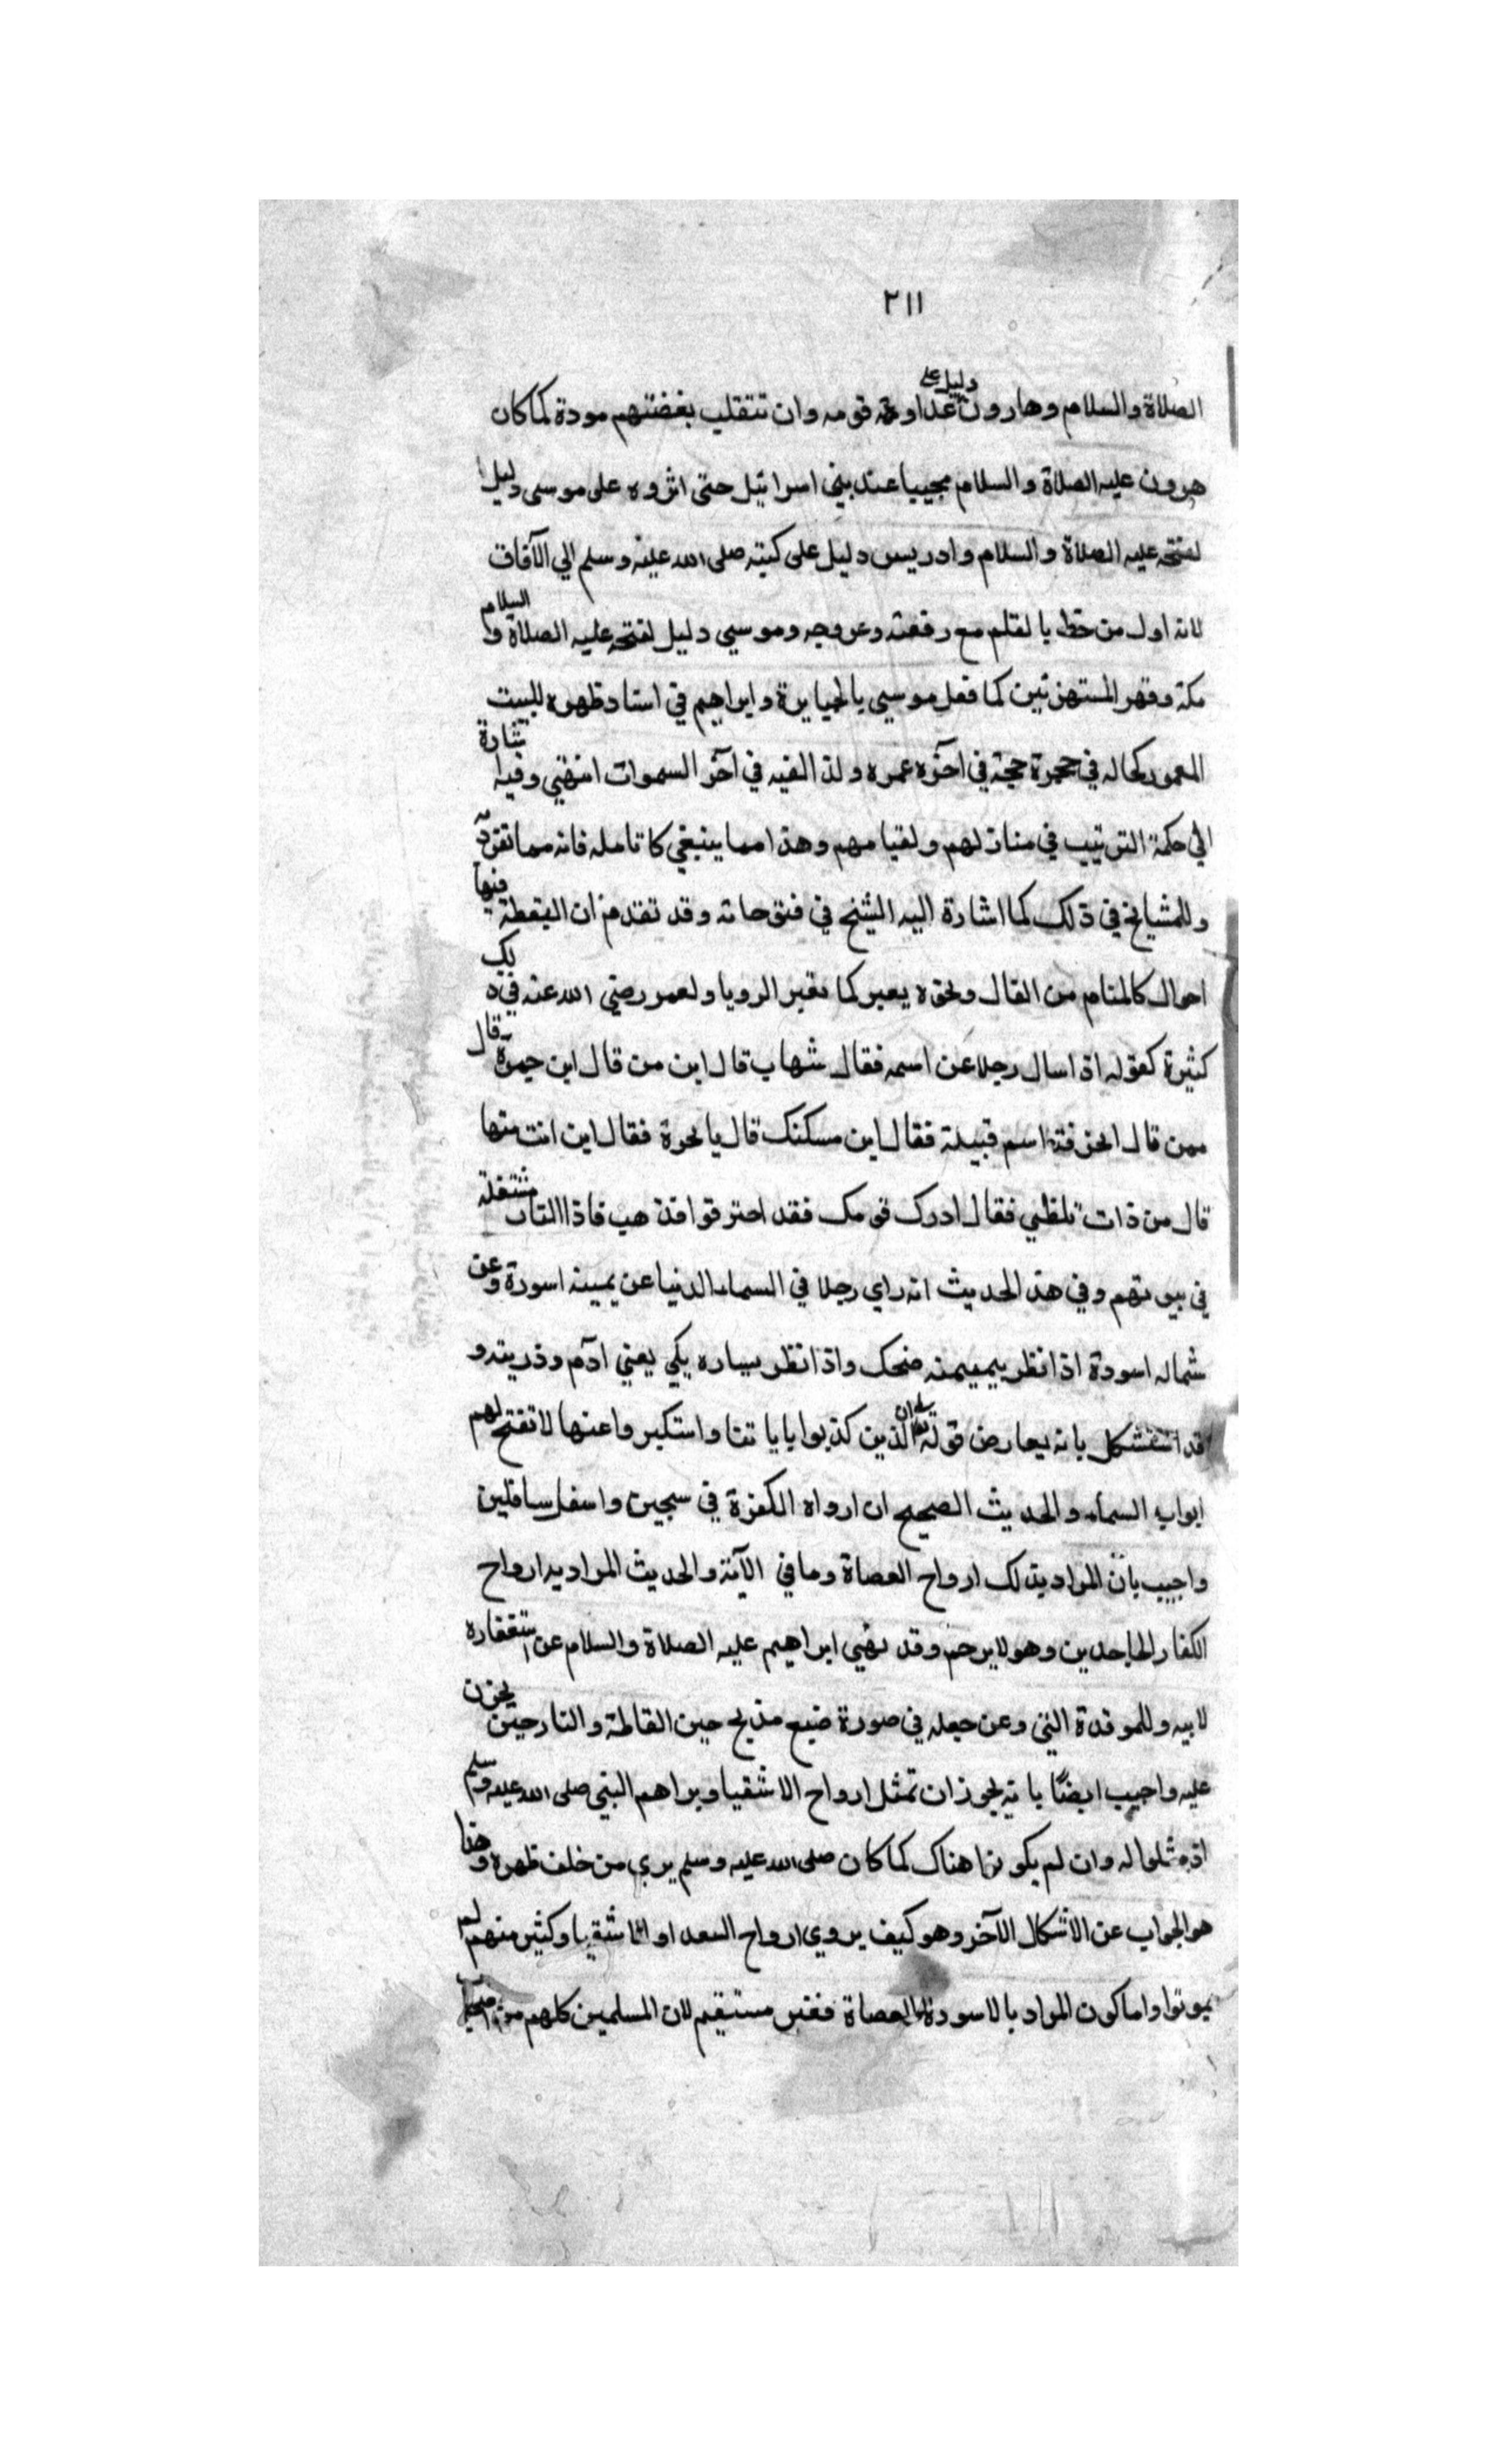 ٢١١
الصلاة والسلام وهارون دليل على عداوة قومه وان تتقلب بغضتهم مودة كما كان
هرون عليه الصلاة والسلام مجيبا عند بني اسرائيل حتى اثروه على موسى دليل
لفتحه عليه الصلاة والسلام وادريس دليل على كتبته صلى الله عليه وسلم الي الآفاق
لانه اول من خط بالقلم مع رفعته وعروجه وموسي دليل لفتحه عليه الصلاة والسلام
مكة وقهر المستهزئين كما فعل موسي بالجبابرة وابراهيم في استاد ظهره للبيت
المعمور كحاله في حجرة حجته في آخره عمره ولذا لقيه في آخر السموات انتهي وفيه
الي حكمة الترتيب في منازلهم ولقيامهم وهذا مما ينبغي كا تامله فانه مما تفرد
وللمشايخ في ذلك كما اشارة اليه الشيخ في فتوحاته وقد تقدم ان اليقظة فيها
احوال كالمنام من الفال ونحوه يعبر كما تعبر الرويا ولعمر رضي الله عنه في
كثيرة كقوله اذا سال رجلا عن اسمه فقال شهاب قال ابن من قال ابن جمرة قال
ممن قال الحزفة اسم قبيلة فقال اين مسكنك قال بالحرة فقال اين انت منها
قال من ذات تلظي فقال ادرك قومك فقد احترقوا فذهب فاذا النار مشتعلة
في بيوتهم وفي هذ الحديث انه راي رجلا في السماء الدنيا عن يمينه اسورة وعن
شماله اسودة اذا نظر بيميمنه ضحك واذا نظر بيساره يكي يعني آدم وذريته و
قد استشكل بانه يعارض قوله ان الذين كذبوا باياتنا واستكبروا عنها لا تفتح لهم
ابواب السماء والحديث الصحيح ان ارواه الكفرة في سجين واسفل سافلين
واجيب بان المراد بذلك ارواح العصاة وما في الآية والحديث المراد به ارواح
الكفار الجاحدين وهو لا يرحم وقد نهي ابراهيم عليه الصلاة والسلام عن استغفاره
لابيه وللموقدة النبي وعن جعله في صورة ضبع مذبح حين القاطة والنار حين يحزن
عليه واجيب ايضًا بانه يجوز ان تمثل ارواح الاشقيا ويراهم النبي صلى الله عليه وسلم
اذ مثلوا له وان لم يكونوا هناك كما كان صلى الله عليه وسلم يري من خلف ظهره وهذا
هو الجواب عن الاشكال الآخر وهو كيف يروي ارواح السعداو الاشقيا وكثير منهم لم
يموتوا واما كون المراد بالاسودة العصاة فغير مستقيم لان المسلمين كلهم من